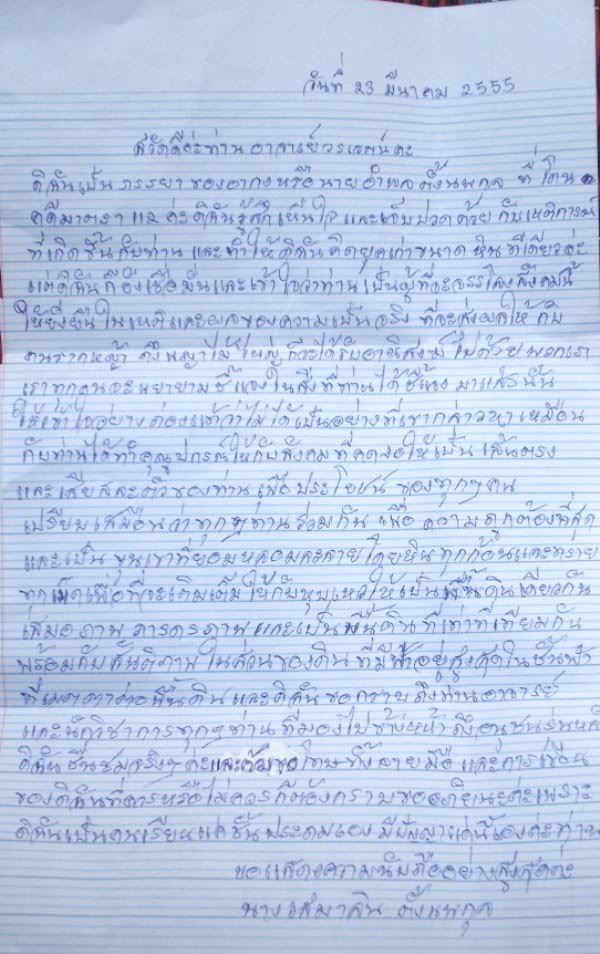 วันที่ 23 มีนาคม 2555
สวัสดีค่ะท่าน อาจารย์วรเจตน์ค่ะ
ดิฉันเป็นภรรยา ของอากงหรือนายอำพล ตั้งนพกุล ที่โดน
คดีมาตรา ค่ะดิฉันรู้สึกเห็นใจ และเจ็บปวดด้วย กับเหตุการณ์
ที่เกิดขึ้นกับท่าน และทำให้ดิฉันคิดยุคเก่าขนาด หินทีเดียวค่ะ
แต่ดิฉันก็ยังเชื่อมั่นและเข้าใจว่าท่าน เป็นผู้ที่จะจรรโลงสังคมนี้
ให้ยั่งยืน ในเหตุและผลของความเป็นจริง ที่จะส่งผลให้ กับ
คนรากหญ้า ถึงพญาไม้ใหญ่ ก็จะได้รับอานิสงฆ์ ไปด้วย พวกเรา
เราทุกคนจะพยายามชี้แจงในสิ่งที่ท่าน ได้ชี้แจง มาแล้วนั้น
ให้เข้าใจอย่างถ่องแท้ว่าไม่ได้เป็นอย่างที่เขากล่าวหา เหมือน
กับท่านได้ทำคุณูปการให้กับสังคมที่คดงอให้เป็น เส้นตรง
และเสียสละตัวของท่าน เพื่อประโยชน์ ของทุกๆคน
เปรียบเสมือนว่าทุกๆท่านร่วมกัน เพื่อ ความถูกต้องที่สุด
และเป็น ขุนเขาที่ยอมหลอมละลายโดยหินทุกก้อนและทราย
ทุกเม็ดเพื่อที่จะเติมเต็มให้กับหุบเหวให้เป็นพื้นดินเดียวกัน
เสมอภาพ ภารดรภาพ และเป็นผืนดิน ที่เท่าที่เทียมกัน
พร้อมกับสันติภาพ ในส่วนของดิน ที่มีฟ้าอยู่สูงสุดในชั้นฟ้า
ที่เมตตาต่อพื้นดิน และดิฉันขอกราบถึงท่านอาจารย์
และนักวิชาการทุกๆท่าน ที่มองไปข้างหน้า ถึงอนุชนรุ่นหลัง
ดิฉันชื่นชมจริงๆค่ะและต้องขอโทษทั้งลายมือ และการเขียน
ของดิฉันที่ควรหรือไม่ควรก็ต้องกราบขออภัยนะค่ะเพราะ
ดิฉันเป็นคนเรียนแค่ชั้นประถมเอง มีปัญญาแค่นี้เองค่ะท่าน
ขอแสดงความนับถืออย่างสูงสุดค่ะ
นางรสมาลิน ตั้งนพกุล